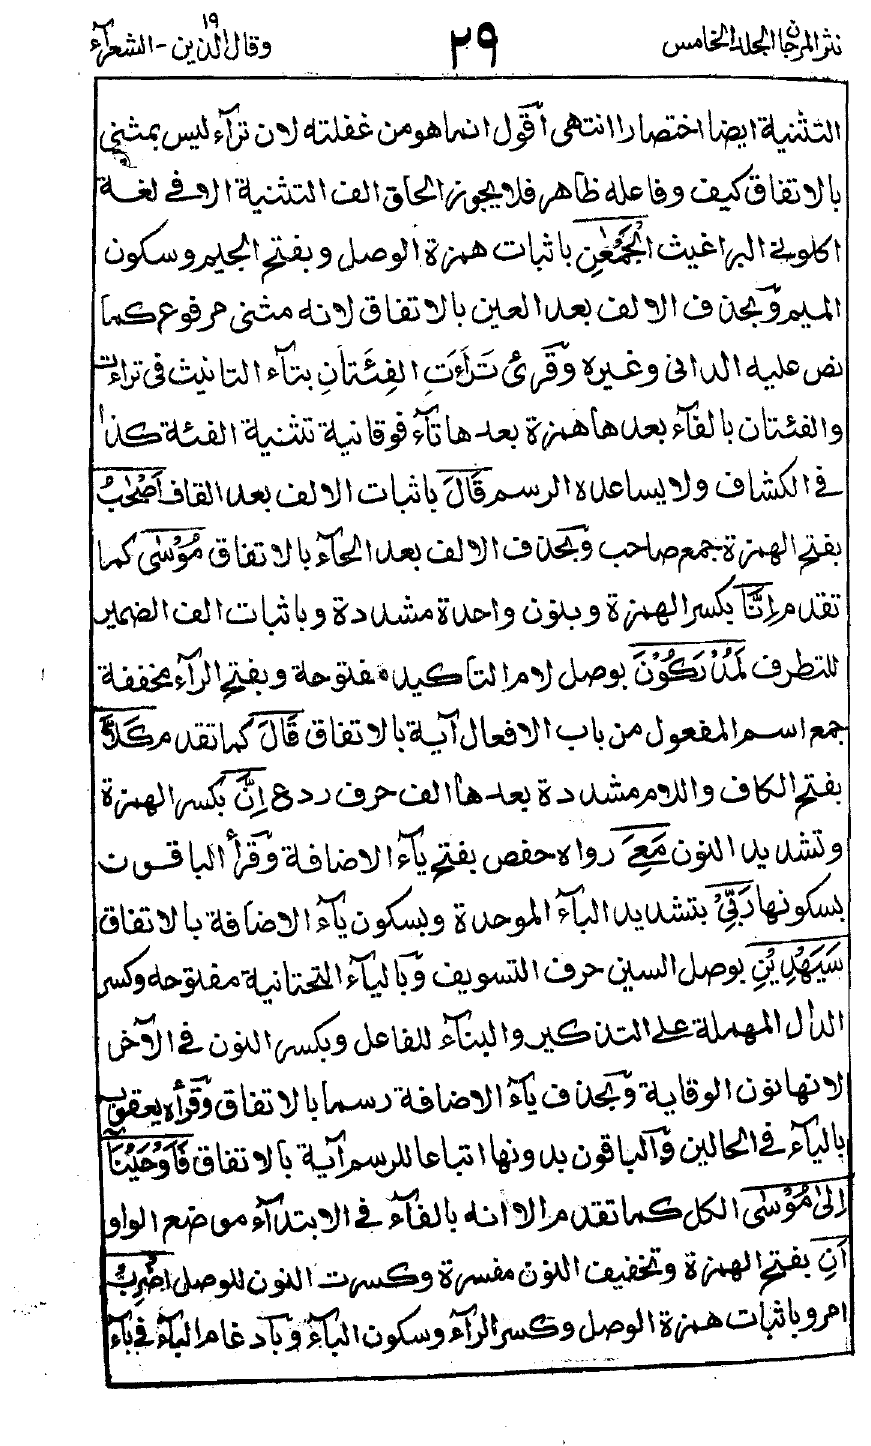 نثر المرجان الجلد الخامس
٢٩
وقال الذين ١٩ - الشعرآء
التثنية ايضا اختصارا انتهى اقول انما هو من غفلته لان ترآء ليس بمثنى
بالاتفاق كيف وفاعله ظاهر فلا يجوز الحاق الف التثنية الا فى لغة
اكلونى البراغيث الْجَمْعٰنِ باثبات همزة الوصل وبفتح الجيم وسكون
الميم وبحذف الالف بعد العين بالاتفاق لانه مثنى مرفوع كما
نص عليه الدانى وغيره وقرئ تَرَآءَتِ الفِئَتَانِ بتآء التانيث فى تراءت
والفئتان بالفآء بعدها همزة بعدها تآء فوقانية تثنية الفئة كذا
فى الكشاف ولا يساعده الرسم قَالَ باثبات الالف بعد القاف اَصْحٰبُ
بفتح الهمزة جمع صاحب وبحذف الالف بعد الحآء بالاتفاق مُوْسٰى كما
تقدم اِنَّا بكسر الهمزة وبنون واحدة مشددة وباثبات الف الضمير
للتطرف لَمُدْرَكُوْنَ بوصل لام التاكيد مفتوحة وبفتح الرآء مخففة
جمع اسم المفعول من باب الافعال آية بالاتفاق قَالَ كما تقدم كَلَّا
بفتح الكاف واللام مشددة بعدها الف حرف ردع اِنَّ بكسر الهمزة
وتشديد النون مَعِيَ رواه حفص بفتح يآء الاضافة وقرأ الباقون
بسكونها رَبِّيْ بتشديد البآء الموحدة وبسكون يآء الاضافة بالاتفاق
سَيَهْدِيْنِ بوصل السين حرف التسويف وباليآء التحتانية مفتوحه وكسر
الدال المهملة على التذكير والبنآء للفاعل وبكسر النون فى الآخر
لانها نون الوقاية وبحذف يآء الاضافة رسما بالاتفاق وقرأه يعقوب
باليآء فى الحالين والباقون بدونها اتباعا للرسم آية بالاتفاق فَاَوْحَيْنَآ
اِلٰى مُوْسٰى الكل كما تقدم الا انه بالفآء فى الابتدآء موضع الواو
اَنِ بفتح الهمزة وتخفيف النون مفسرة وكسرت النون للوصل اضْرِبْ
امر وباثبات همزة الوصل وكسر الرآء وسكون البآء وبادغام البآء فى بآء